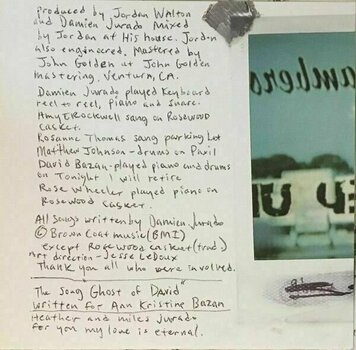 produced by Jordan Walton
and Damien Jurado Mixed
by Jordan at His house. Jordan
also engineered. Mastered by
John Golden at John Golden
mastering. Ventura, CA.
Damien Jurado played Keyboard
reel to reel, piano and snare.
Amy E Rockwell sang on Rosewood
casket.
Rosanne Thomas sang parking Lot
Matthew Johnson - drums on Paxil
David Bazan - played piano and drums
on Tonight I will retire
Rose Wheeler played piano on
Rosewood casket.
All songs written by Damien Jurado
© Brown Coat music (BMI)
except Rosewood casket (trad)
Art direction - Jesse LeDoux
Thank you all who were involved.
The song Ghost of David"
written for Ann Kristine Bazan
Heather and miles Jurado
for you my love is eternal.